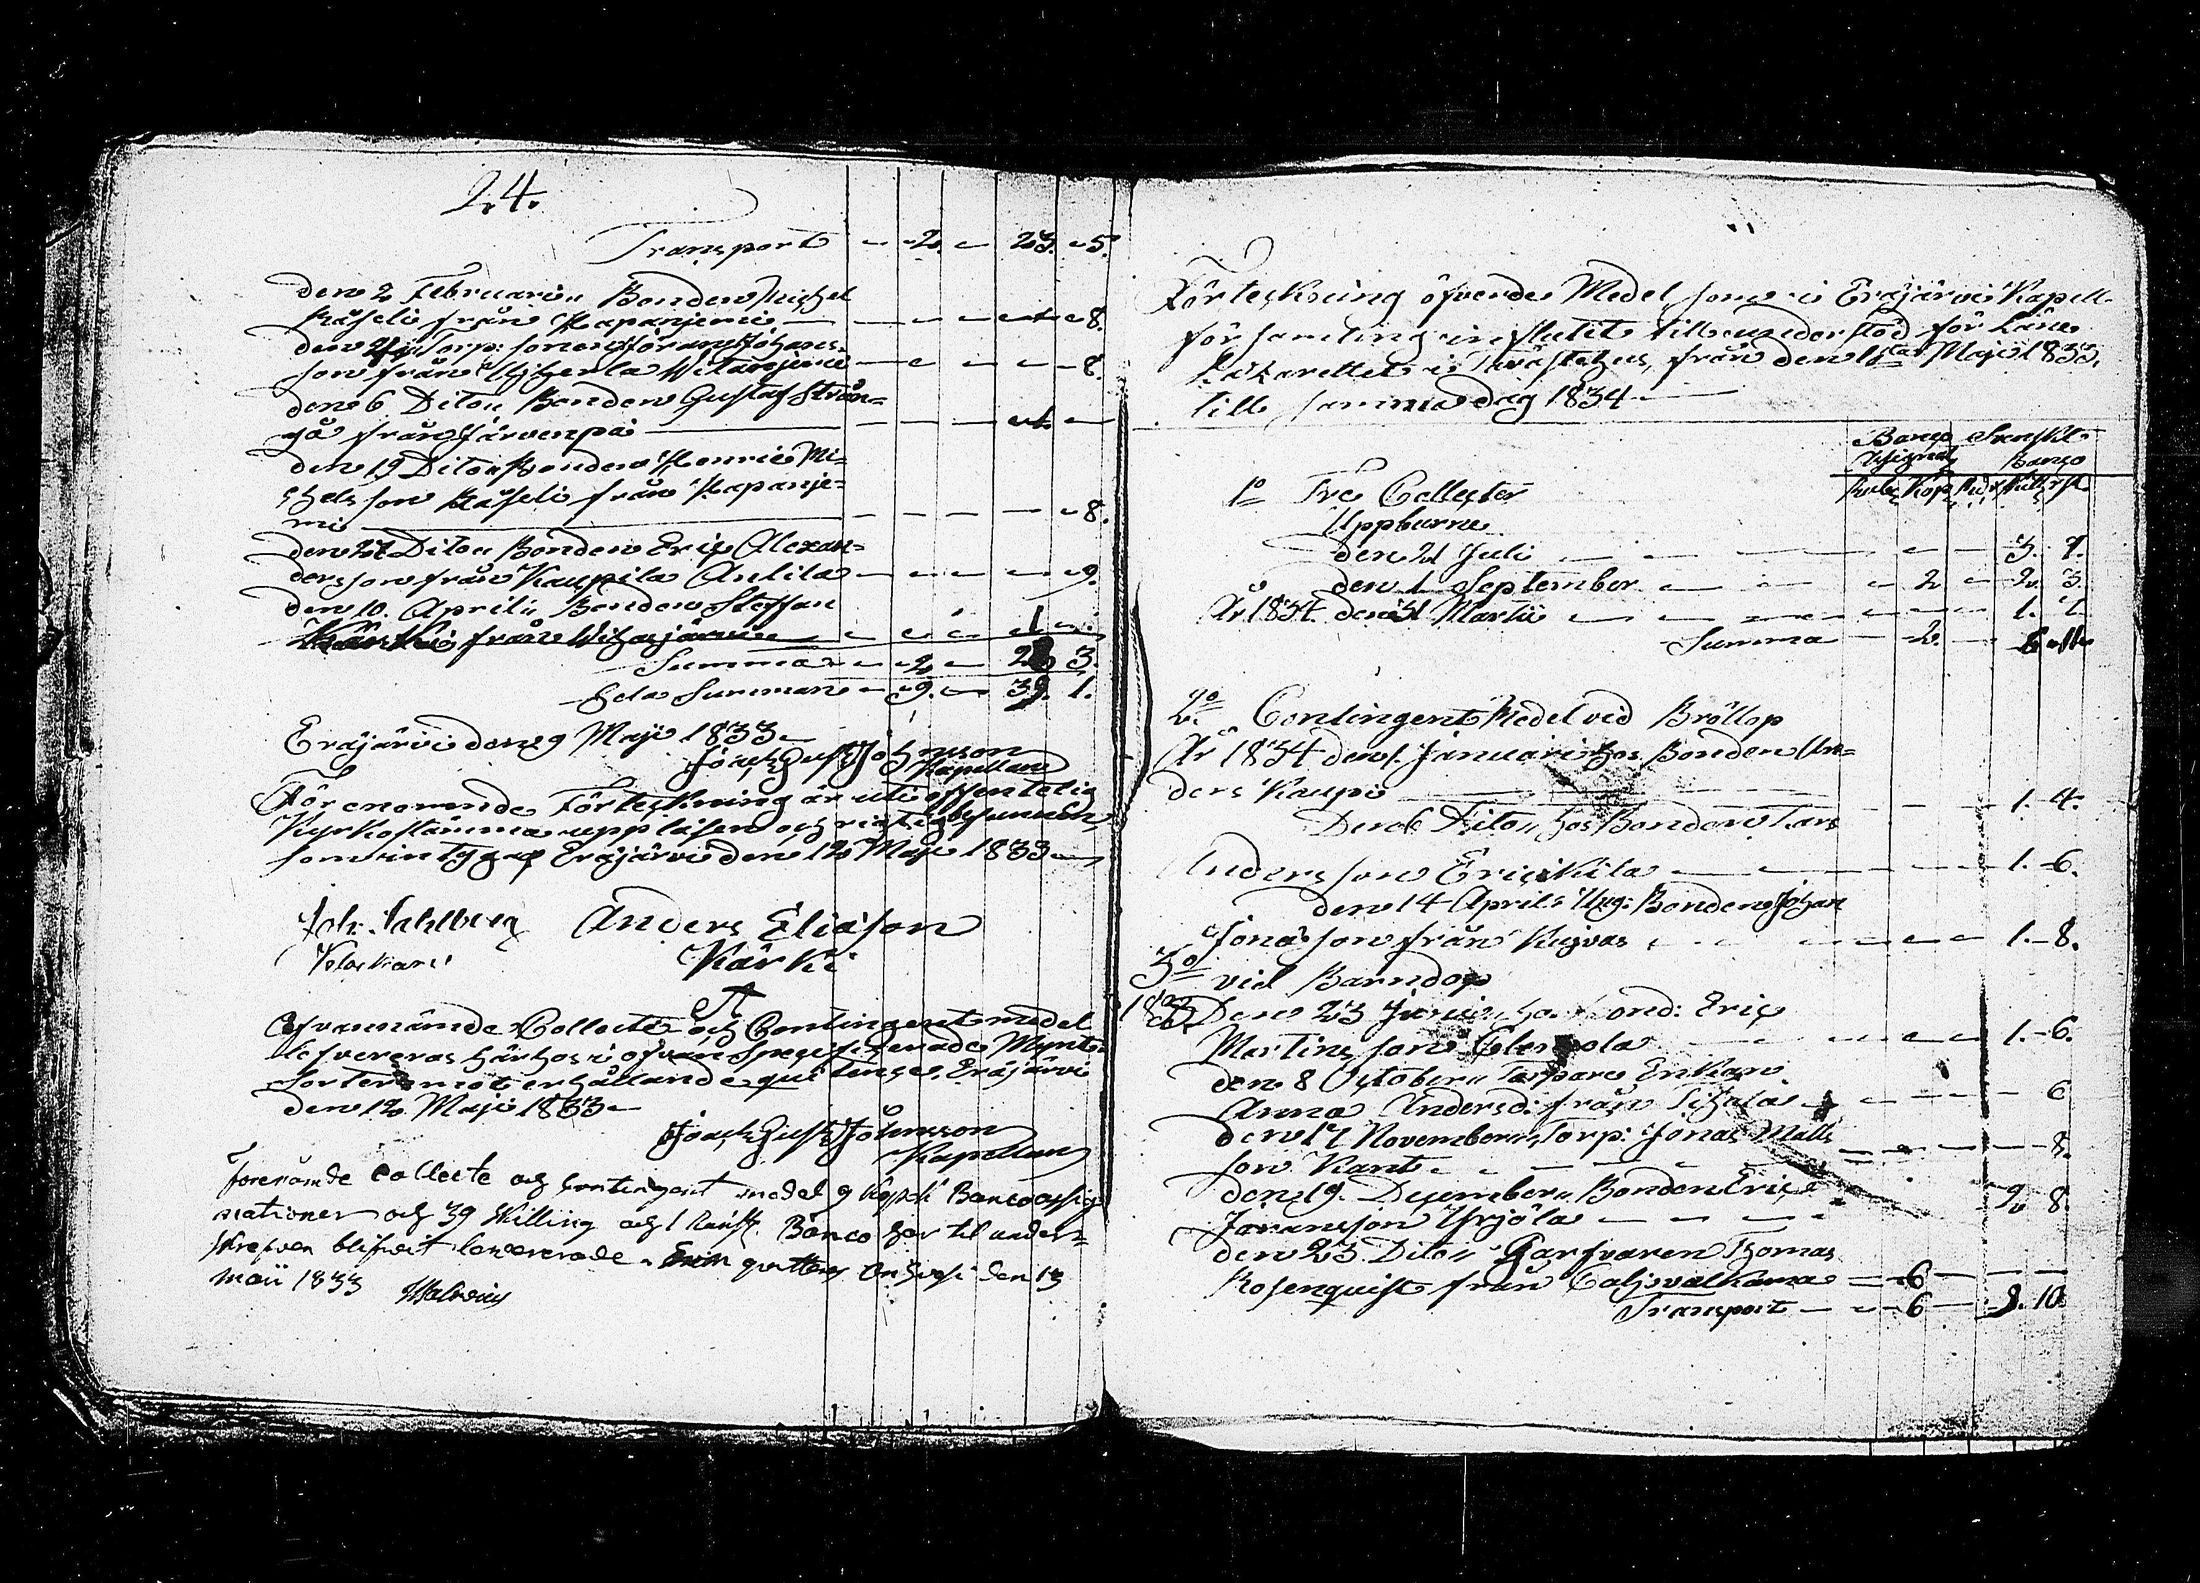 24.
Transport - 2. - 23. - 5.
den 2 Februarii Bonden Michel
Råfseli från Hapanjemi - - - - 8.
Torp: sonen Göran Johans-
son från Witasjärvi - - - - 8.
den 6 Dito Bonden Gustaf Strån-
gå från Järvenpä
den 19 Dito Bonden Henric Mi-
chelsson Råfseli från Hapanje-
mi - - - - 8.
Dito Bonden Eric Alexan-
dersson från Kaupila Antila - - - - 9.
den 10. Aprili Bonden Steffan
från - - - 1 -
Summa - 2 - 3.
Hela Summan - 9. - 39. 1.
Eräjärvi den 9 Maji 1833
Joach Gust Johnsson
Kapellan
Förenämnde Förteckning är uti offentelig
Kyrkostämma uppläsen och riktig befunnen,
som intygas Eräjärvi den 12 Maji 1833
Joh. Sahlberg Anders Eliäson
Klockare Kärki
Ofvannämnde Collecte och Contingent medel
lefvereras härhos i ofvan Specificerade Mynt
Sorter emot erhållande quittence. Eräjärvi
den 12 Maji 1833
Joach Gust Johnsson
Kapellan
Förenämde Collecte och Contingent medel 9 Kopek Banco assig-
nationer och 39 Skilling och 1 Runst. Banco har til under-
skrefven blifvit levererade, som quitteras Orihvesi den 13
Maii 1833
Förteckning öfver de Medel som i Eräjärvi Kapell
församling influtit till understöd för Läne
Lazarettet i Tavastehus, från den 1sta Maji 1833.
till samma dag 1834
Banco Svenskt
Assignat Banco
Rubl Kop Rdr Skill rst
1o Tre Collecter
Uppburne
den 21 Juli - - - 3. 9.
den 1 September - 2 - 2. 3.
År 1834 den 31 Martii - - - 1.
Summa - 2. -
2o Contingent Medel vid Bröllop
År 1834 den 1. Januari hos Bonden An-
ders Kaupi - - - 1. 4.
Den 6 Dito hos Bonden Lars
Andersson Ericskila - - - 1. 6.
den 14 April Ung: Bonden Johan
Jonasson från Kujvas - - - 1. 8.
3o vid Barndop
1833 Den 23 Junii hos Bond: Eric
Martinsson - - - 1. 6.
den 8 October Torpare Enkan
Anna Andersd: från - - - 6
den 17 November Torp: Jonas Matts
son Kant - - - - 8.
den 19. December Bonden Eric
Göransson Yrjölä - - - 2 8.
den 23 Dito Garfvaren Thomas
Rosenquist från - 6 - - -
Transport - 6 - 9. 10